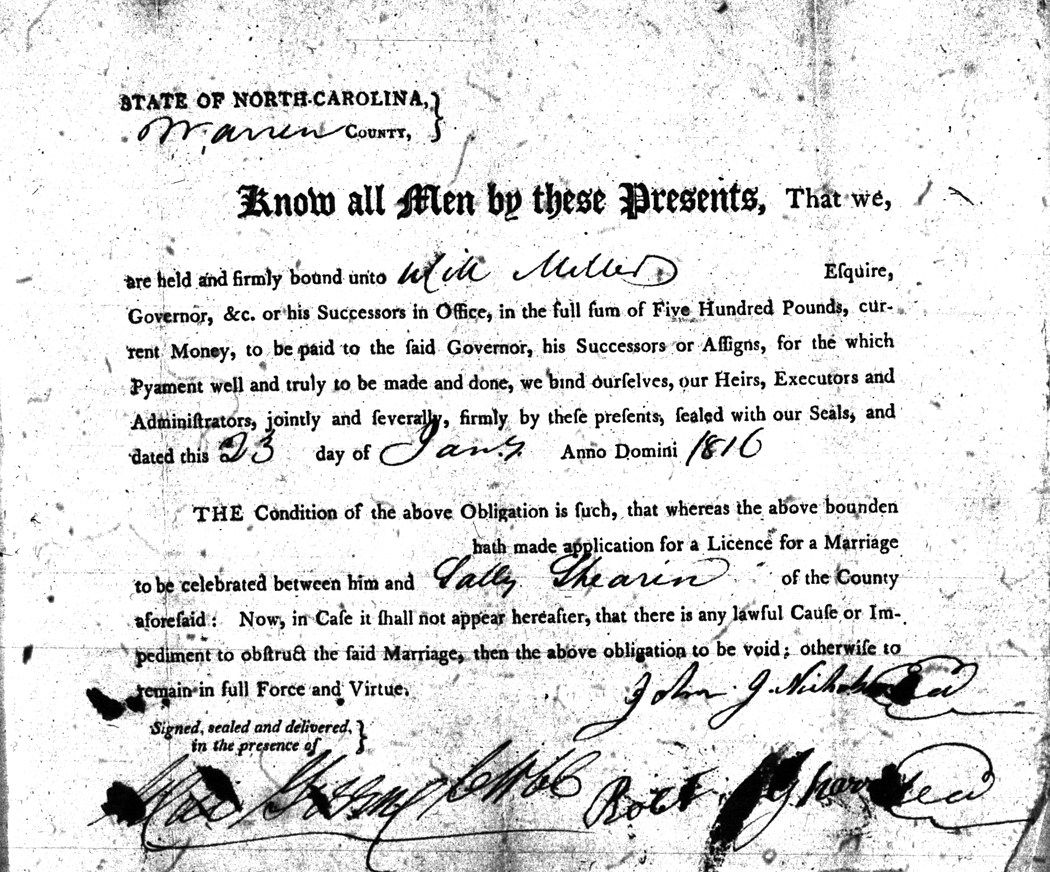 STATE OF NORTH-CAROLINA,
Warren COUNTY,
Know all Men by these Presents, That we,
are held and firmly bound unto Will Miller Eſquire,
Governor, &c. or his Successors in Office, in the full ſum of Five Hundred Pounds, cur-
rent Money, to be paid to the ſaid Governor, his Successors or Aſſigns, for the which
Pyament well and truly to be made and done, we bind ourſelves, our Heirs, Executors and
Adminiſtrators, jointly and ſeverally, firmly by theſe preſents, ſealed with our Seals, and
dated this 23 day of Jany. Anno Domini 1816
THE Condition of the above Obligation is ſuch, that whereas the above bounden
hath made application for a Licence for a Marriage
to be celebrated between him and Sally Shearin of the County
aforeſaid: Now, in Caſe it ſhall not appear hereafter, that there is any lawful Cauſe or Im-
pediment to obſtruct the ſaid Marriage, then the above obligation to be void; otherwiſe to
remain in full Force and Virtue.
John J. Seal
Signed, sealed and delivered,
in the presence of
Robt Seal